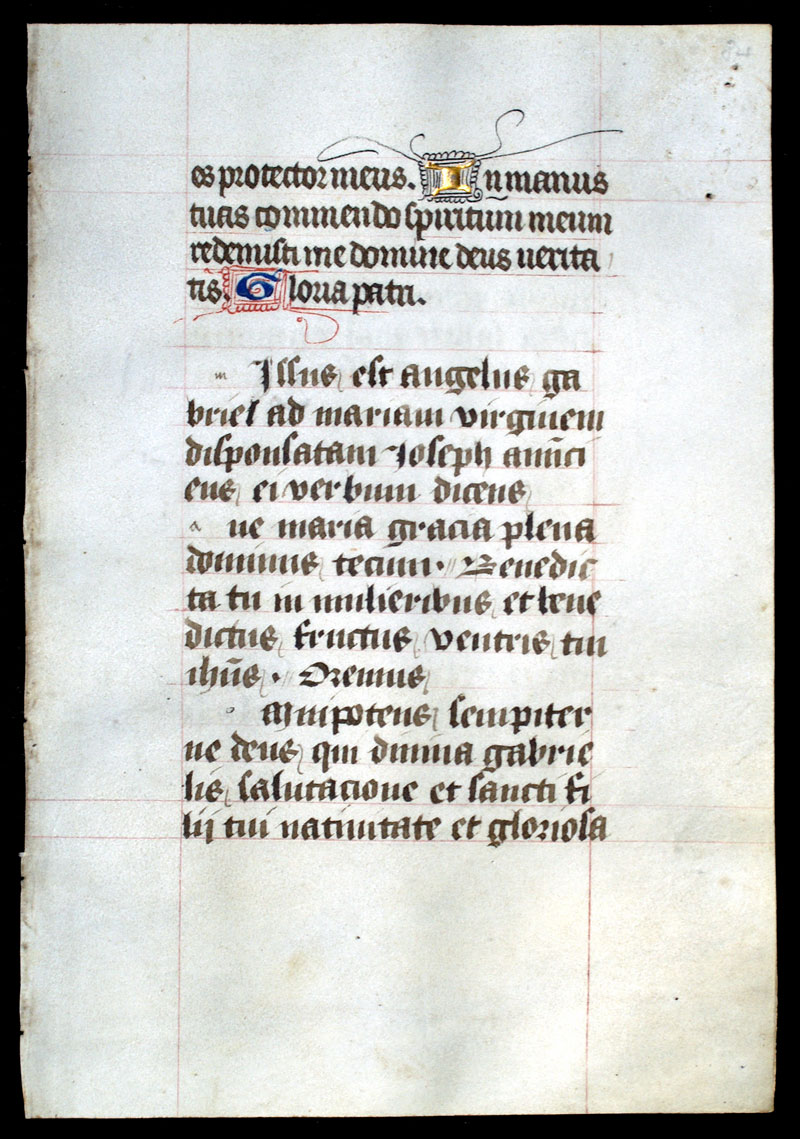 es protector meus. In manus
tuas commendo spiritum meum
redemisti me domine deus uerita
tis. Gloria patri.
m Issus est angelus ga
briel ad mariam virginem
disponsatam Joseph annūci
ens ei verbum dicens
a ue maria gracia plena
dominus tecum. Benedic
ta tu in mulieribus et bene
dictus fructus ventris tui
ihūs. Oremus
o Mnipotens sempiter
ne deus qui diuina gabrie
lis salutacione et sancti fi
lij tui natiuitate et gloriosa